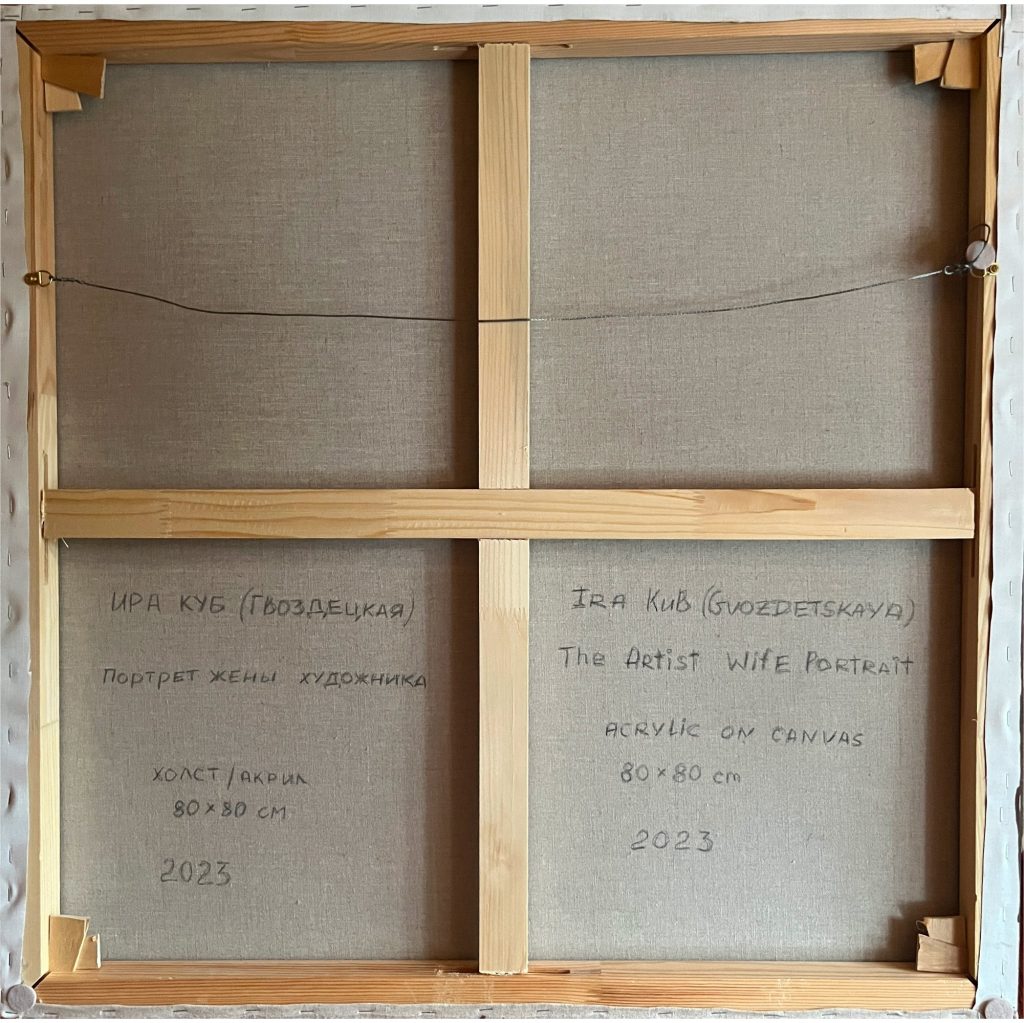 ИРА КУБ (ГВОЗДЕЦКАЯ)
ПОРТРЕТ ЖЕНЫ ХУДОЖНИКА
ХОЛСТ/АКРИЛ
80×80 СМ
2023
IRA KUB (GVOZDETSKAYA)
The Artist Wife Portrait
ACRYLIC ON CANVAS
80×80 cm
2023